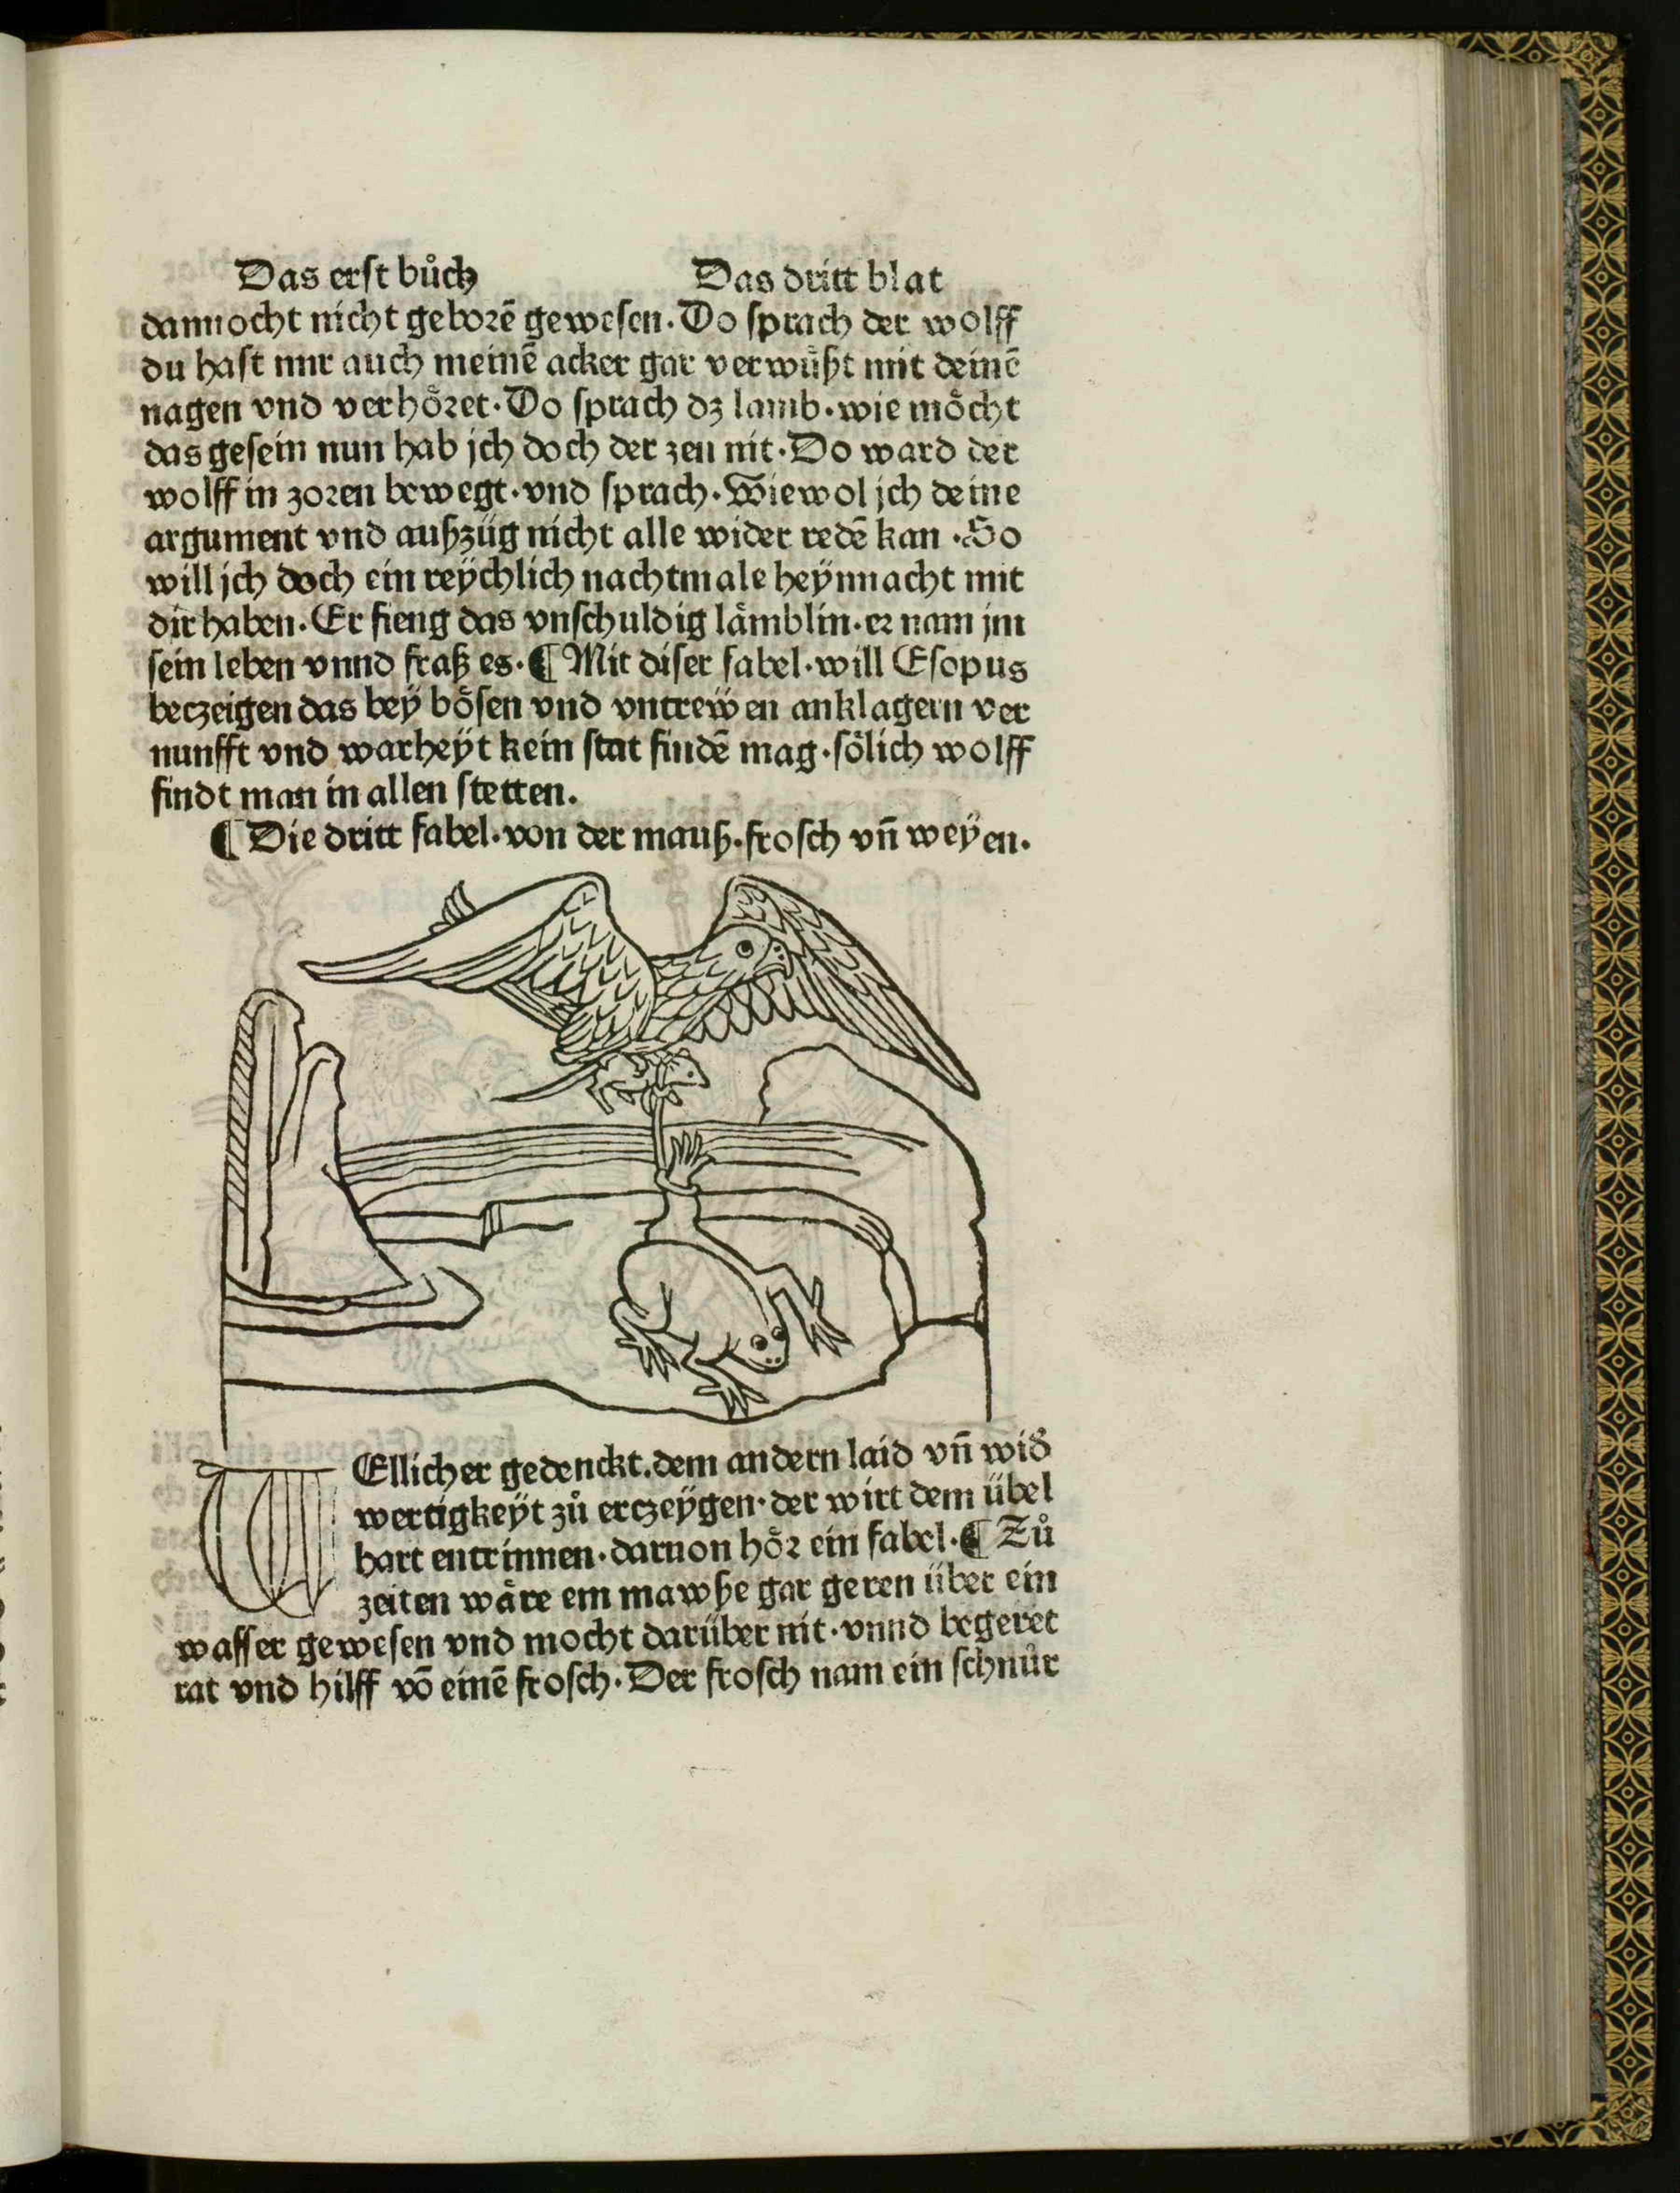 Das erst bůch Das dritt blat
dannocht nicht geborē gewesen. Do sprach der wolff
du hast mir auch meinē acker gar verwůßt mit deinē
nagen vnd verhőret. Do sprach dz lamb. wie mőcht
das gesein nun hab jch doch der zen nit. Do ward der
wolff in zoren bewegt. vnd sprach. Wiewol jch deine
argument vnd außzüg nicht alle wider redē kan. So
will jch doch ein reÿchlich nachtmale heÿnnacht mit
dir haben. Er fieng das vnschuldig lämblin. er nam jm
sein leben vnnd fraß es. ¶ Mit diser fabel. will Esopus
beczeigen das beÿ bősen vnd vntrewen anklagern ver
nunfft vnd warheÿt kein stat findē mag. sőlich wolff
findt man in allen stetten.
¶ Die dritt fabel. von der mauß. frosch vn̄ weÿen.
WEllicher gedenckt. dem andern laid vn̄ wid̛
wertigkeÿt zů erczeÿgen. der wirt dem übel
hart entrinnen. daruon hőr ein fabel. ¶ Zů
zeiten wåre ein mawße gar geren über ein
wasser gewesen vnd mocht darüber nit. vnnd begeret
rat vnd hilff vō einē frosch. Der frosch nam ein schnůr